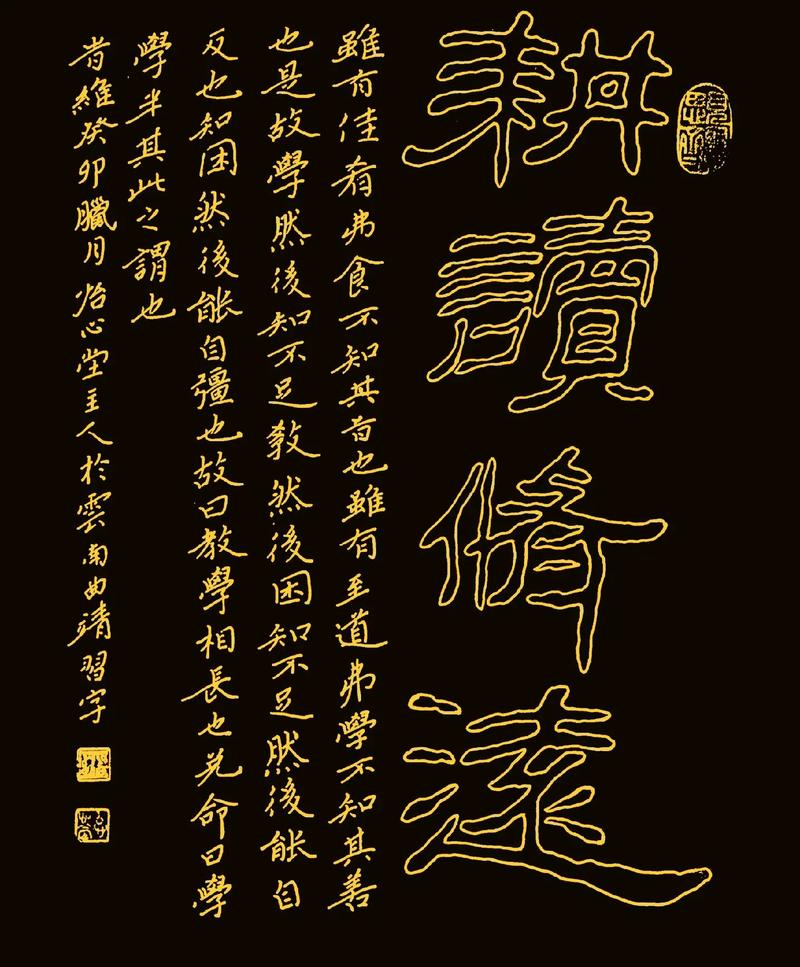 耕讀脩遠
雖有佳肴弗食不知其旨也雖有至道弗學不知其善
也是故學然後知不足教然後困知不足然後能自
反也知困然後能自彊也故曰教學相長也兌命曰學
學半其此之謂也
旹維癸卯臘月怡心堂主人於雲南曲靖習字